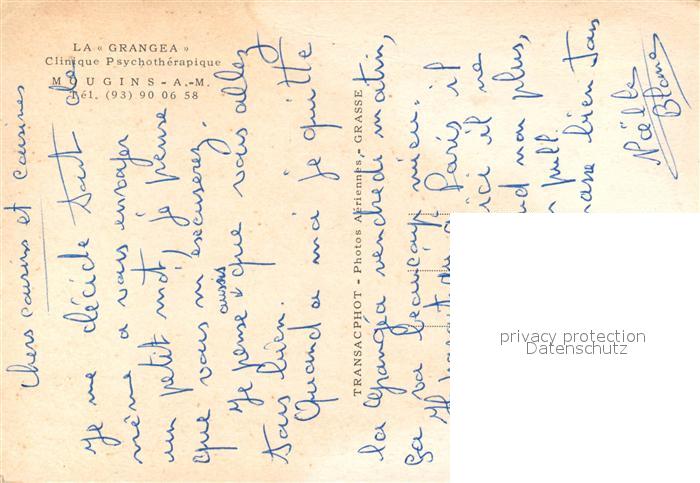 LA « GRANGEA »
Clinique Psychothérapique
MOUGINS - A.-M.
Tél. (93) 90 06 58
Chers cousins et cousines
Je me décide tout de
même a vous envoyer
un petit mot, je pense
que vous m'excuserez.
Je pense aussi que vous allez
tous bien.
Quand a moi je quitte
TRANSACPHOT - Photos Aériennes - GRASSE
la Grangéa vendredi matin,
ça va beaucoup mieu.
Il parait qu'à Paris il
ici il ne
non plus,
pull.
bien Tous
Noëlle
Blanc
privacy protection
Datenschutz